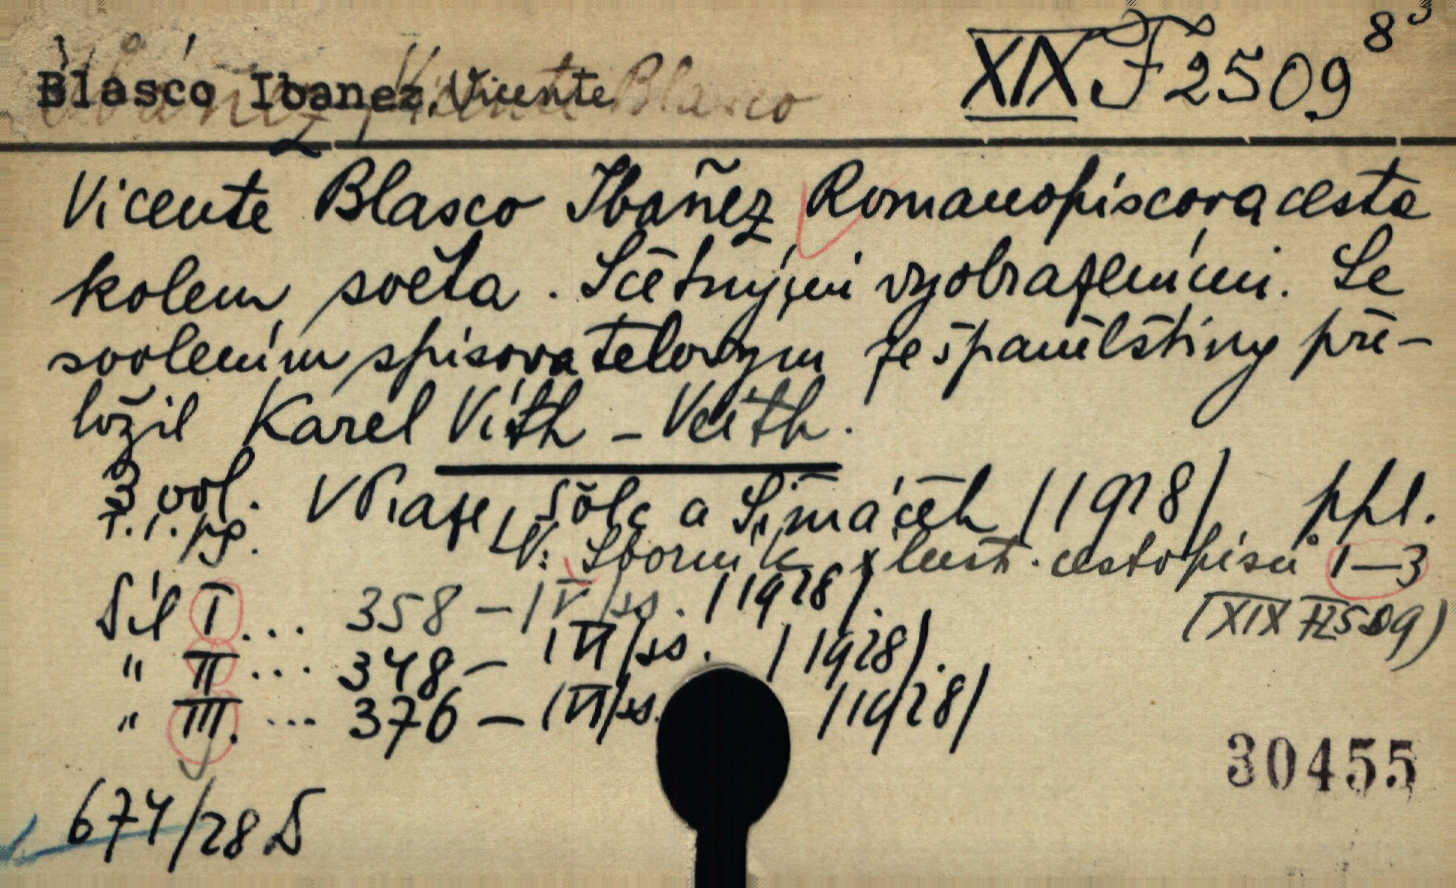 Blasco Ibanez, Vicente
XIX F 2509 8°
Vicente Blasco Ibañez Romanopiscova cesta
kolem světa. S četnými vyobrazeními. Se
svolením spisovatelovým ze španělštiny pře-
ložil Karel Vít - Veith.
3 vol. V Praze, Šolc a Šimáček /1928/ ppl.
V: Sborník illustr. cestopisů 1-3
(XIX F 2509)
Díl I... 358 - /V/ ss. /1928/.
" II ... 348 - /VI/ ss. /1928/.
" III. ... 376 - /VI/ ss. /1928/
30455
674/28 D